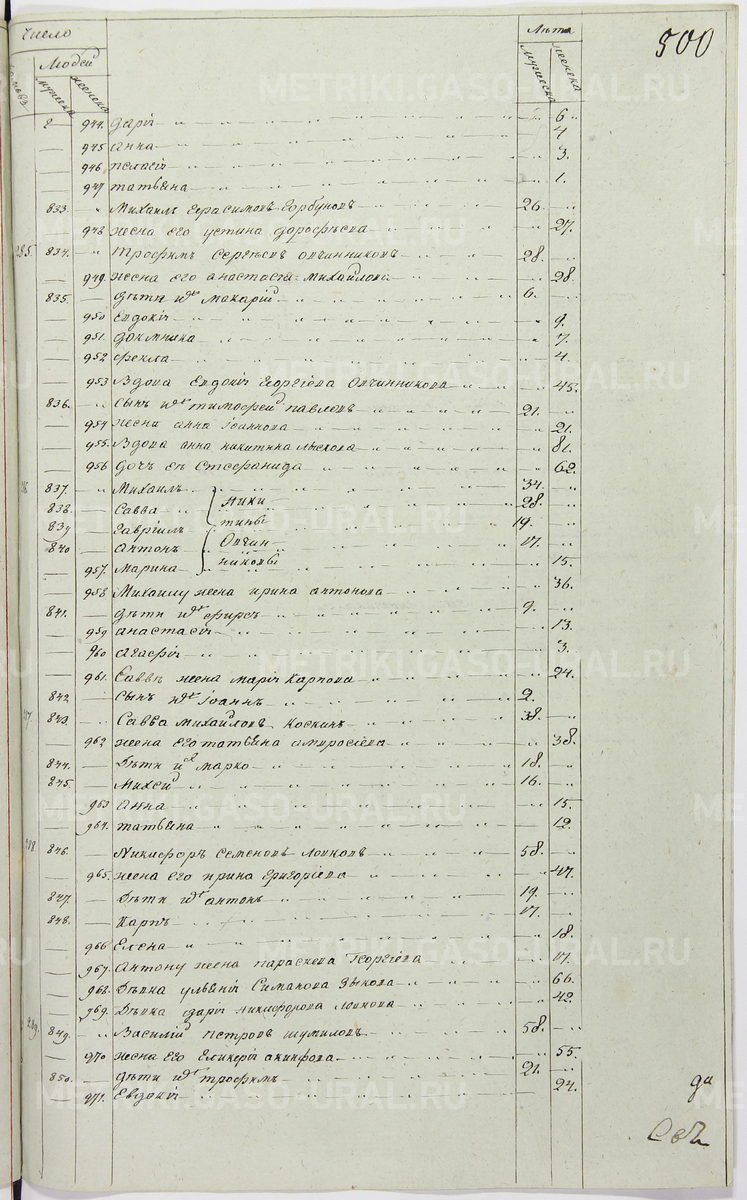 Число
Лѣта
500
Людей
мужеска
женска
мужеска
женска
944. дарiя 6
945 анна 4
946 пелагiя 3.
947 татьяна 1.
833. Михаилъ Герасимовъ Горбуновъ 26.
948 жена его устина дорофѣева 27.
285. 834. трофимъ Сергѣевъ овчинниковъ 28.
949. жена его анастасiя Михайлова 28
835. дѣти ихъ макарiй 6.
950 Евдокiя 9.
951. домника 7.
952 фекла 4.
953 Вдова Евдокiя Георгiева Овчинникова 45.
836. сынъ ея тимофей павловъ 21.
954 жена анна Iоаннова 21.
955. Вдова анна никитина 81.
956 дочь ея Стефанида 62.
837. Михаилъ 34.
838. Савва Ники 28.
839 Гаврiилъ тины 19.
840 антонъ Овчин 17.
957. марина никовы 15.
958 Михаилу жена ирина антонова 36.
841. дѣти ихъ фирсъ 9.
959 анастасiя 13.
960 агафiя 3.
961. Саввѣ жена марiя Карпова 24.
842. сынъ ихъ Iоаннъ 2.
843 Савва михайловъ Коскинъ 38.
962 жена его татьяна амвросiева 38.
844. дѣти ихъ марко 18.
845. 16.
963 анна 15
964. татьяна 12.
846. Никифоръ Семеновъ 58.
965. жена его ирина Григорiева 47.
847. дѣти ихъ антонъ 19.
848. Карпъ 17.
966 Елена 18.
967. антону жена параскева Георгiева 17.
968. Дѣвка Зыкова 66.
969. Дѣвка дарiя Никифорова 42.
289. 849. Василiй петровъ шумиловъ 58.
970 жена его Гликерiя акинфова 55.
850. дѣти ихъ трофимъ 21.
971. Евдокiя 24.